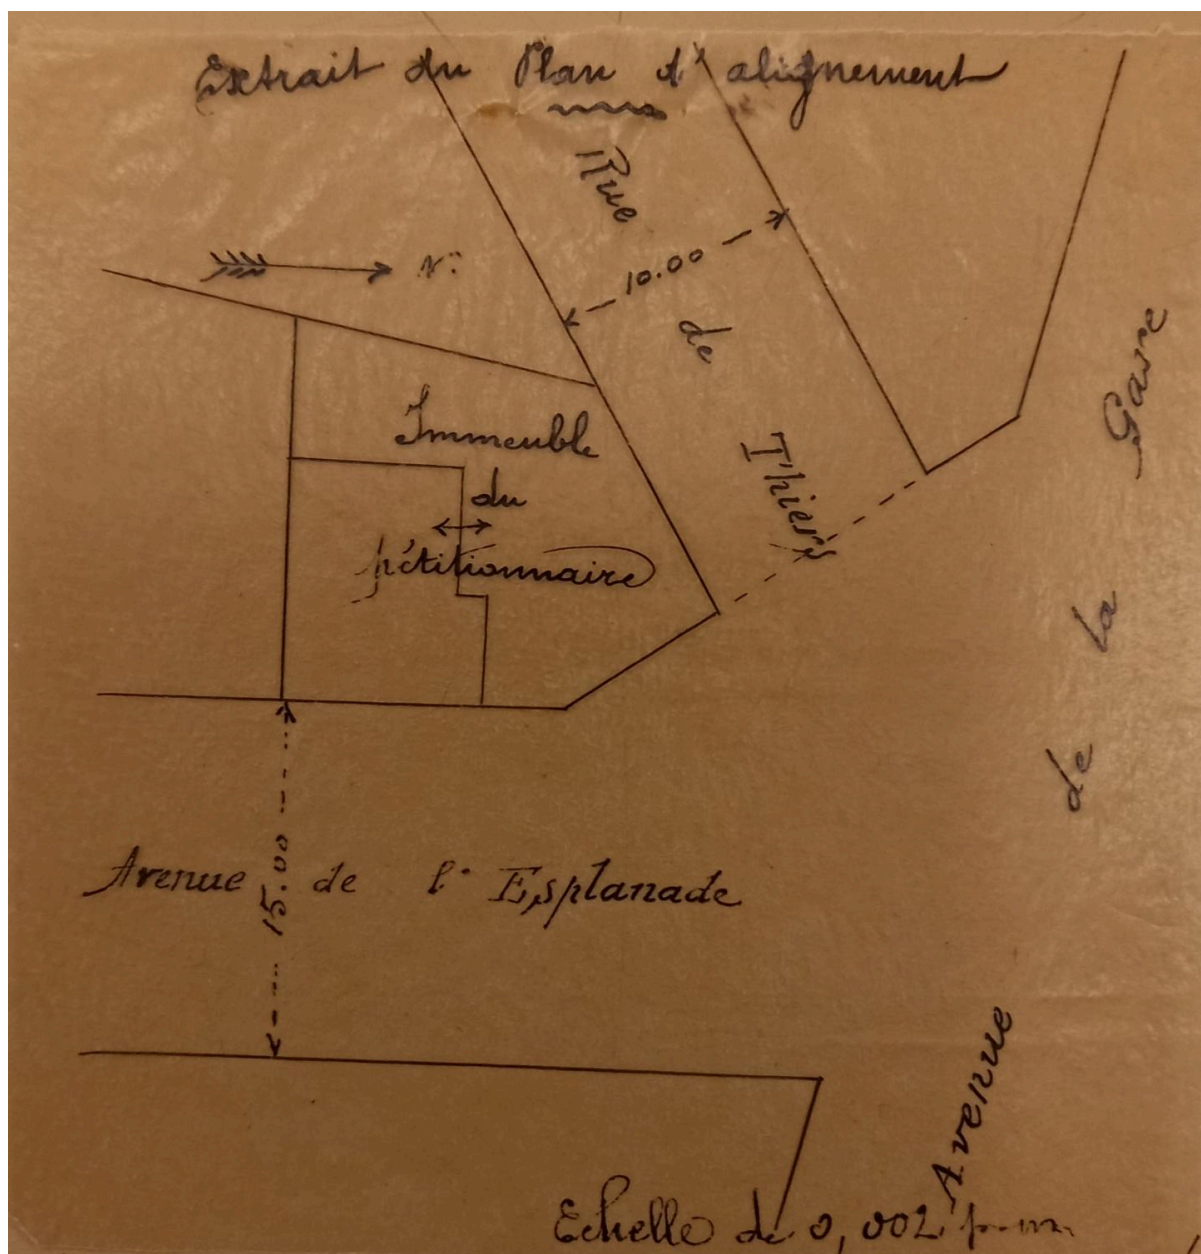 Extrait du Plan d'alignement
Rue de Thiers
10.00
N.
Immeuble
du
pétitionnaire
Avenue de la Gare
15.00
Avenue de l'Esplanade
Echelle de 0,002 p. m.